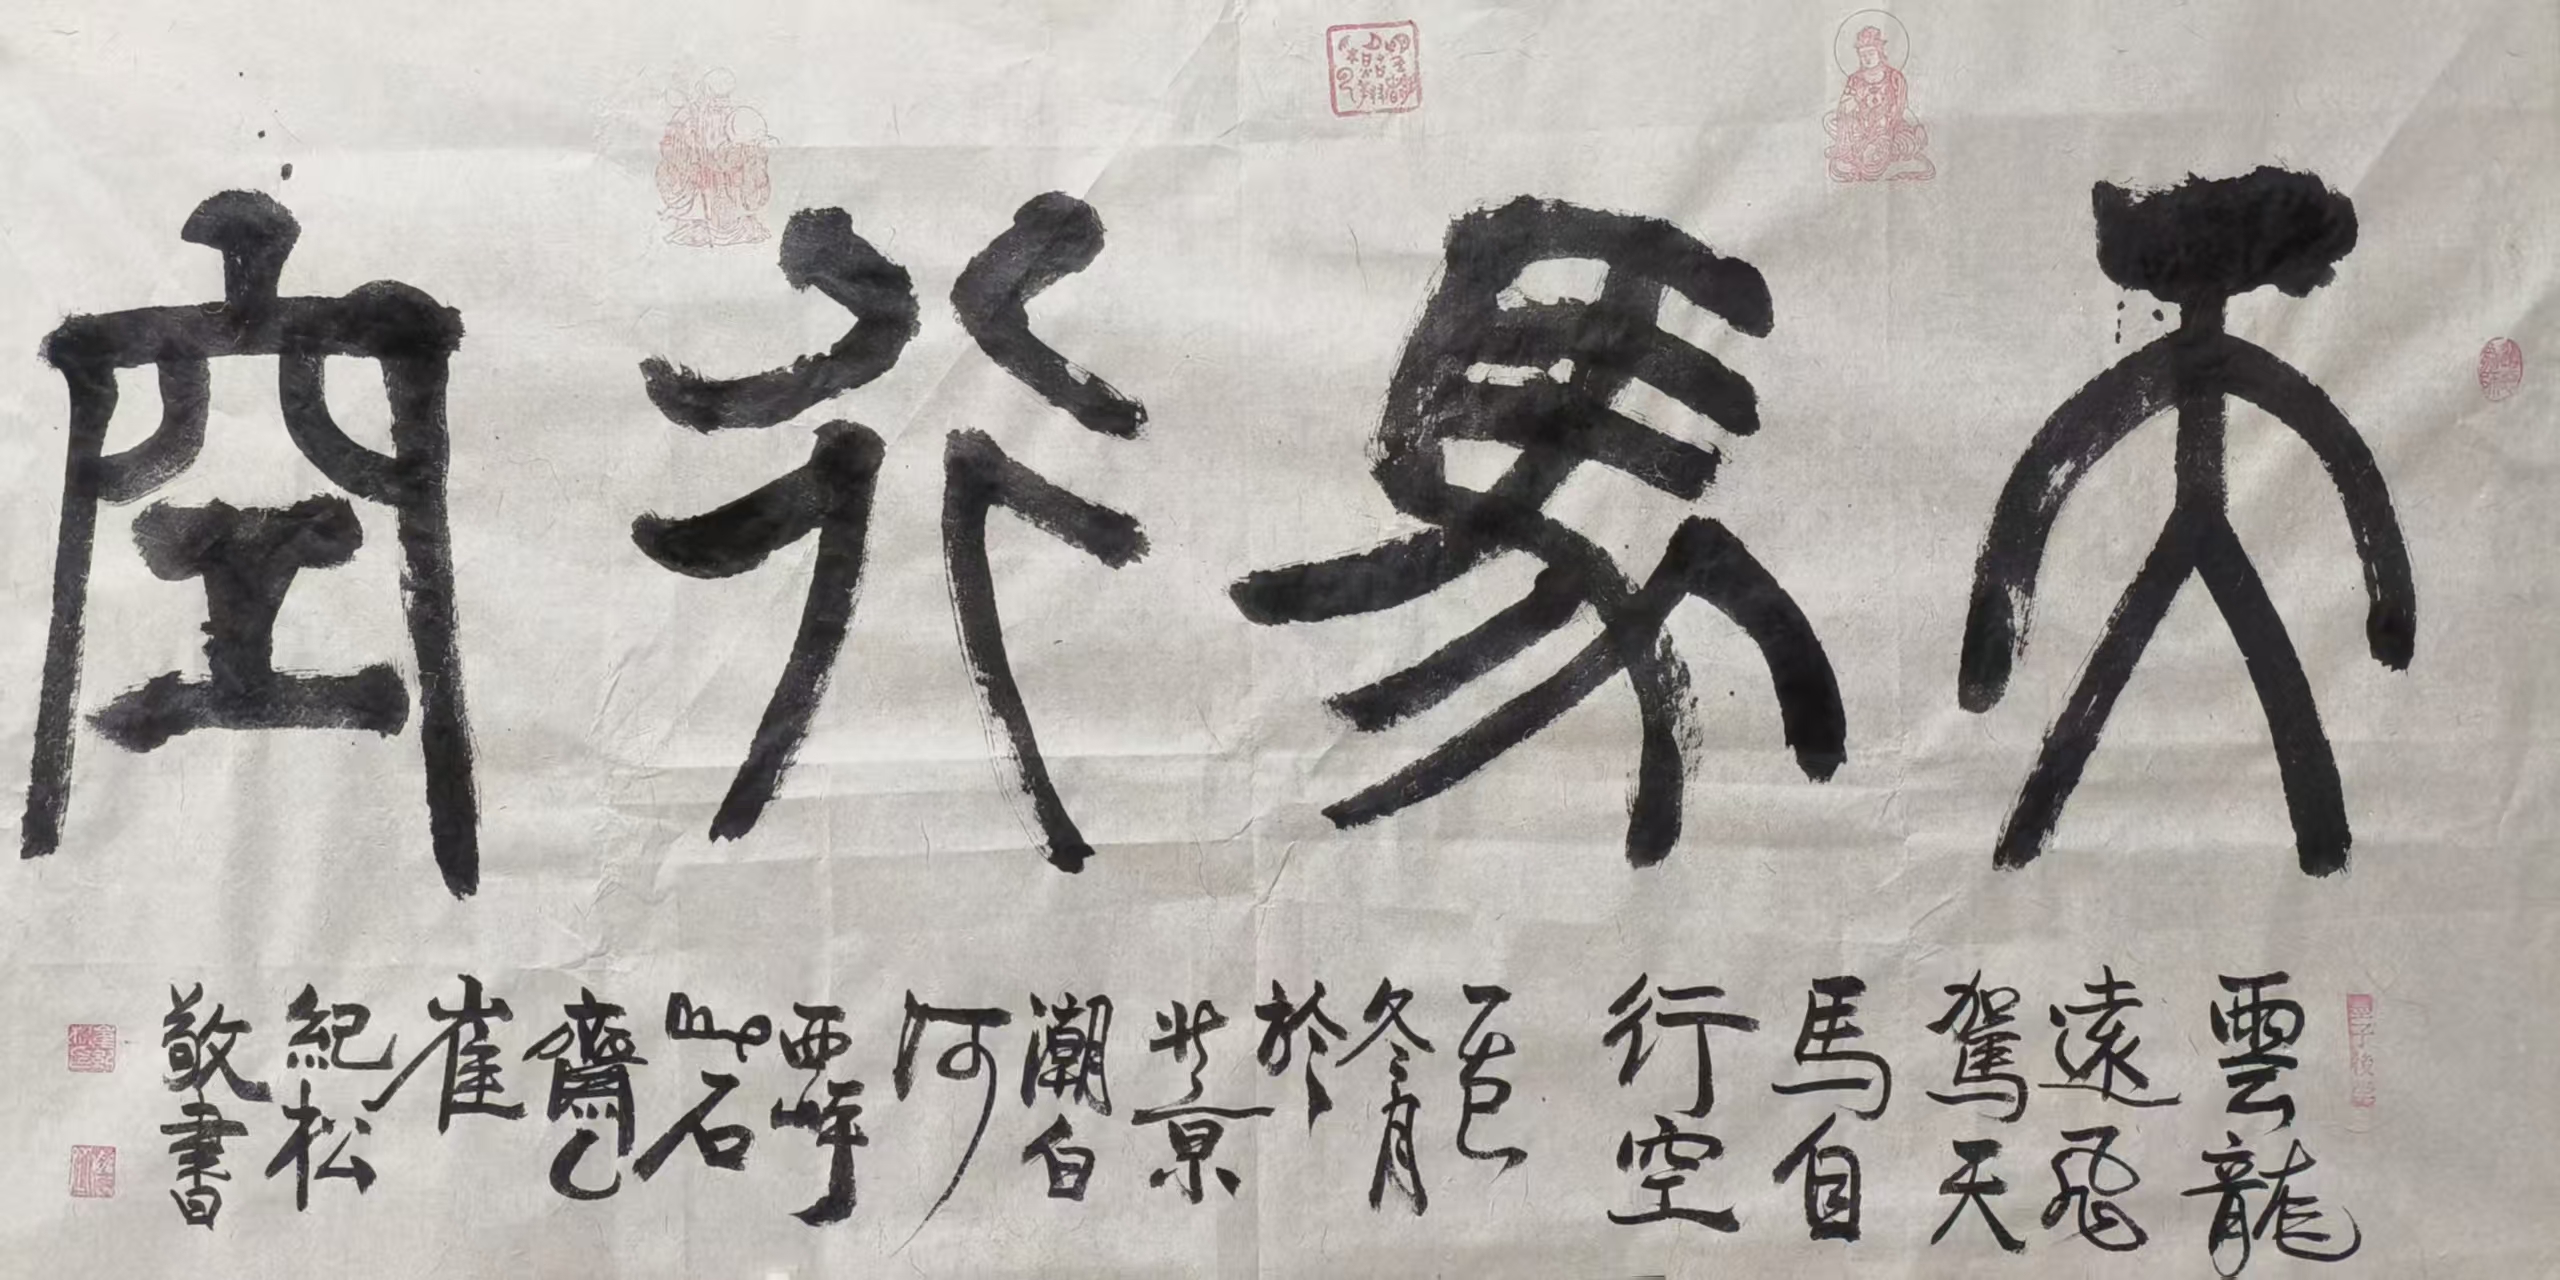 天馬行空
雲龍
遠飛
駕天
馬自
行空
乙巳
冬月
於
北京
潮白
河
西岸
石
齋
崔
紀松
敬書